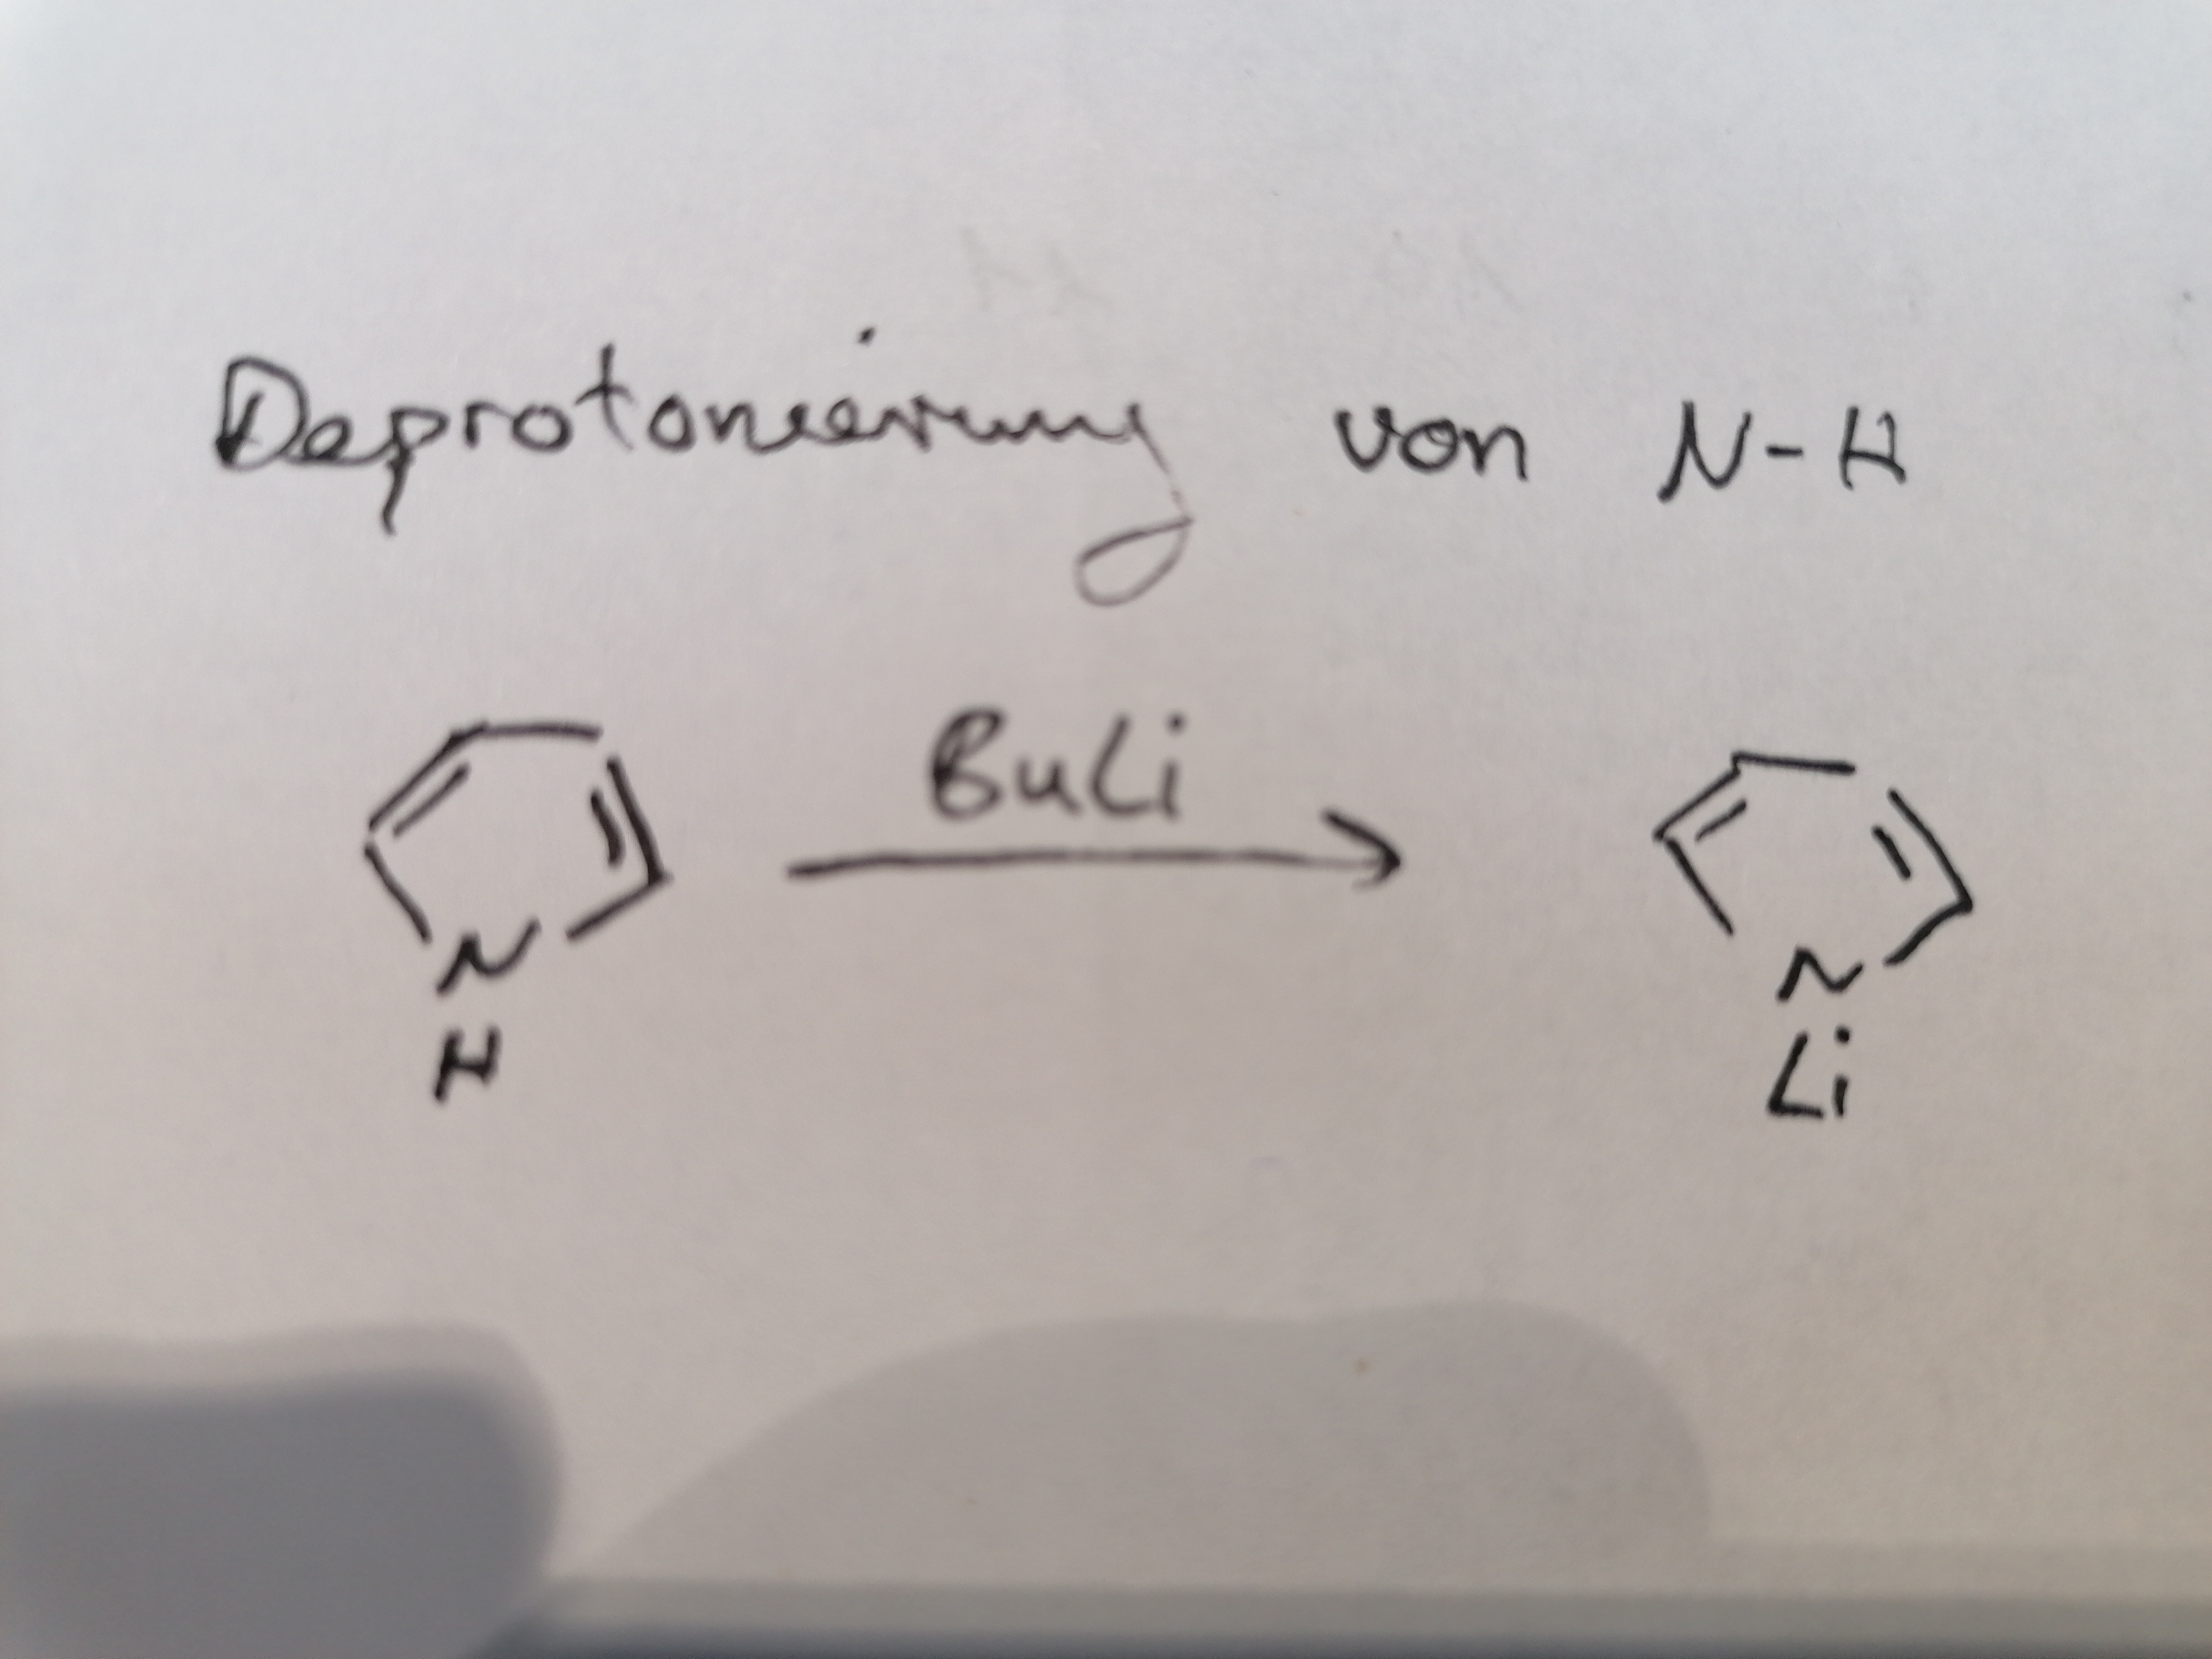 Deprotonierung von N-H
BuLi
N N
H Li